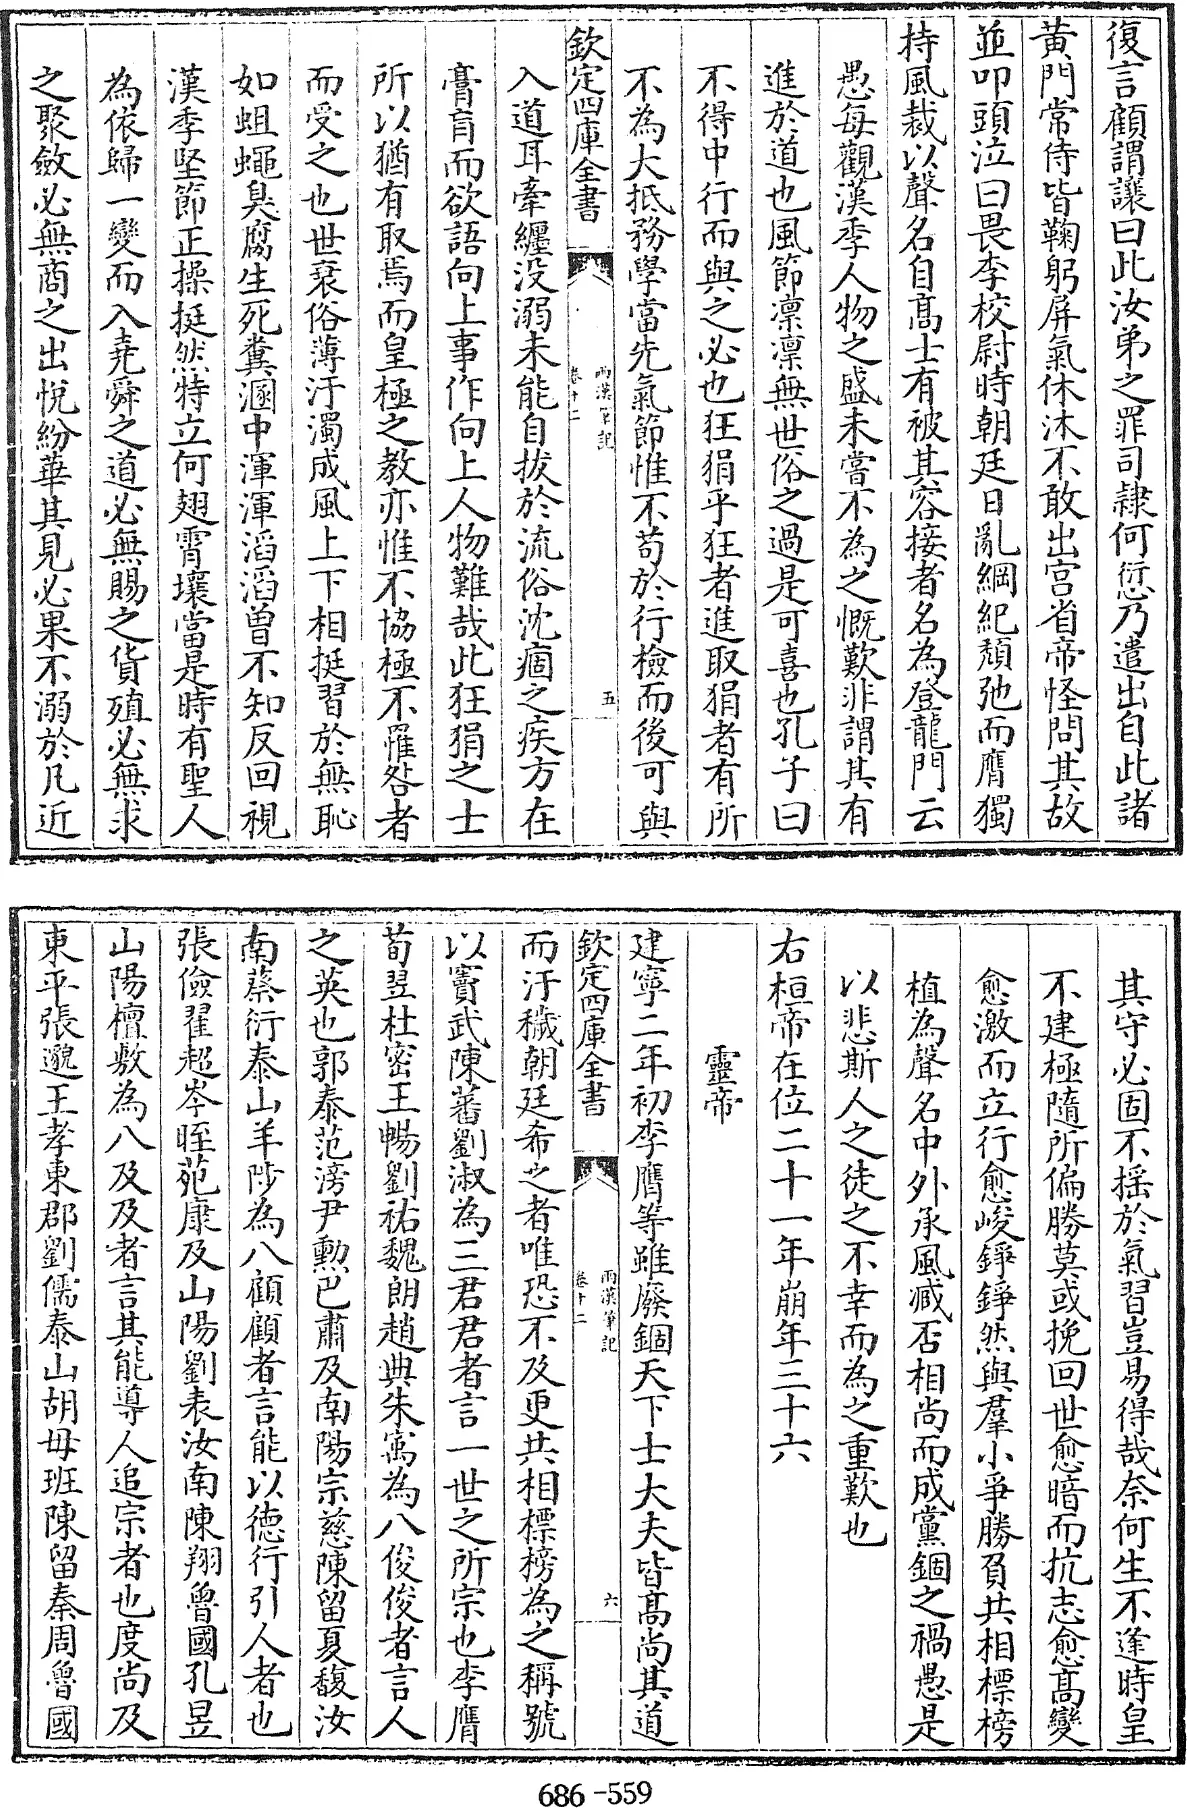 復言顧謂讓曰此汝弟之罪司隸何愆乃遣出自此諸
黃門常侍皆鞠躬屏氣休沐不敢出宮省帝怪問其故
並叩頭泣曰畏李校尉時朝廷日亂綱紀頽弛而膺獨
持風裁以聲名自高士有被其容接者名為登龍門云
愚每觀漢季人物之盛未嘗不為之慨歎非謂其有
進於道也風節凛凛無世俗之過是可喜也孔子曰
不得中行而與之必也狂狷乎狂者進取狷者有所
不為大抵務學當先氣節惟不苟於行檢而後可與
欽定四庫全書
兩漢筆記
卷十二
五
入道耳牽纏没溺未能自拔於流俗沈痼之疾方在
膏肓而欲語向上事作向上人物難哉此狂狷之士
所以猶有取焉而皇極之教亦惟不協極不罹咎者
而受之也世衰俗薄汙濁成風上下相挺習於無恥
如蛆蠅臭腐生死糞溷中渾渾滔滔曾不知反回視
漢季堅節正操挺然特立何翅霄壤當是時有聖人
為依歸一變而入堯舜之道必無賜之貨殖必無求
之聚斂必無商之出悅紛華其見必果不溺於凡近
其守必固不揺於氣習豈易得哉奈何生不逢時皇
不建極隨所偏勝莫或挽回世愈暗而抗志愈高變
愈激而立行愈峻錚錚然與羣小爭勝負共相標榜
植為聲名中外承風臧否相尚而成黨錮之禍愚是
以悲斯人之徒之不幸而為之重歎也
右桓帝在位二十一年崩年三十六
靈帝
建寧二年初李膺等雖廢錮天下士大夫皆高尚其道
欽定四庫全書
兩漢筆記
卷十二
六
而汙穢朝廷希之者唯恐不及更共相標榜為之稱號
以竇武陳蕃劉淑為三君君者言一世之所宗也李膺
荀翌杜密王暢劉祐魏朗趙典朱㝢為八俊俊者言人
之英也郭泰范滂尹勲巴肅及南陽宗慈陳留夏馥汝
南蔡衍泰山羊陟為八顧顧者言能以德行引人者也
張儉翟超岑晊苑康及山陽劉表汝南陳翔魯國孔昱
山陽檀敷為八及及者言其能導人追宗者也度尚及
東平張邈王孝東郡劉儒泰山胡毋班陳留秦周魯國
686-559